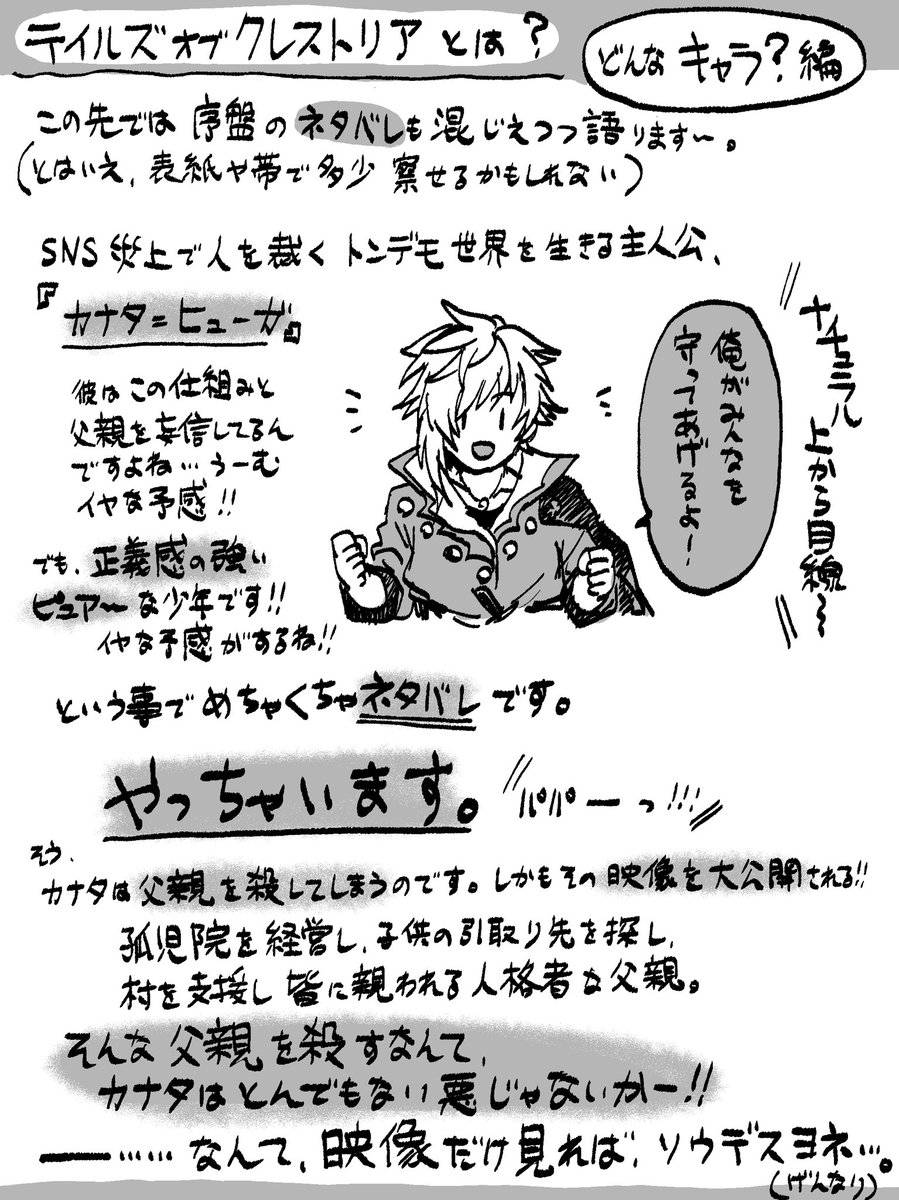 テイルズオブクレストリアとは?
どんなキャラ?編
この先では序盤のネタバレも混じえつつ語ります〜。
(とはいえ、表紙や帯で多少察せるかもしれない)
SNS炎上で人を裁くトンデモ世界を生きる主人公、
『カナタ=ヒューガ』
彼はこの仕組みと
父親を妄信してるん
ですよね…うーむ
イヤな予感!!
でも、正義感の強い
ピュア〜な少年です!!
イヤな予感がするね!!
俺がみんなを
守ってあげるよ〜
ナチュラル
上から目線〜
という事でめちゃくちゃネタバレです。
やっちゃいます。
パパーっ!!!
そう、
カナタは父親を殺してしまうのです。しかもその映像を大公開される!!
孤児院を経営し、子供の引取り先を探し、
村を支援し皆に親われる人格者な父親。
そんな父親を殺すなんて、
カナタはとんでもない悪じゃないかー!!
――……なんて、映像だけ見れば、ソウデスヨネ…。
(げんなり)